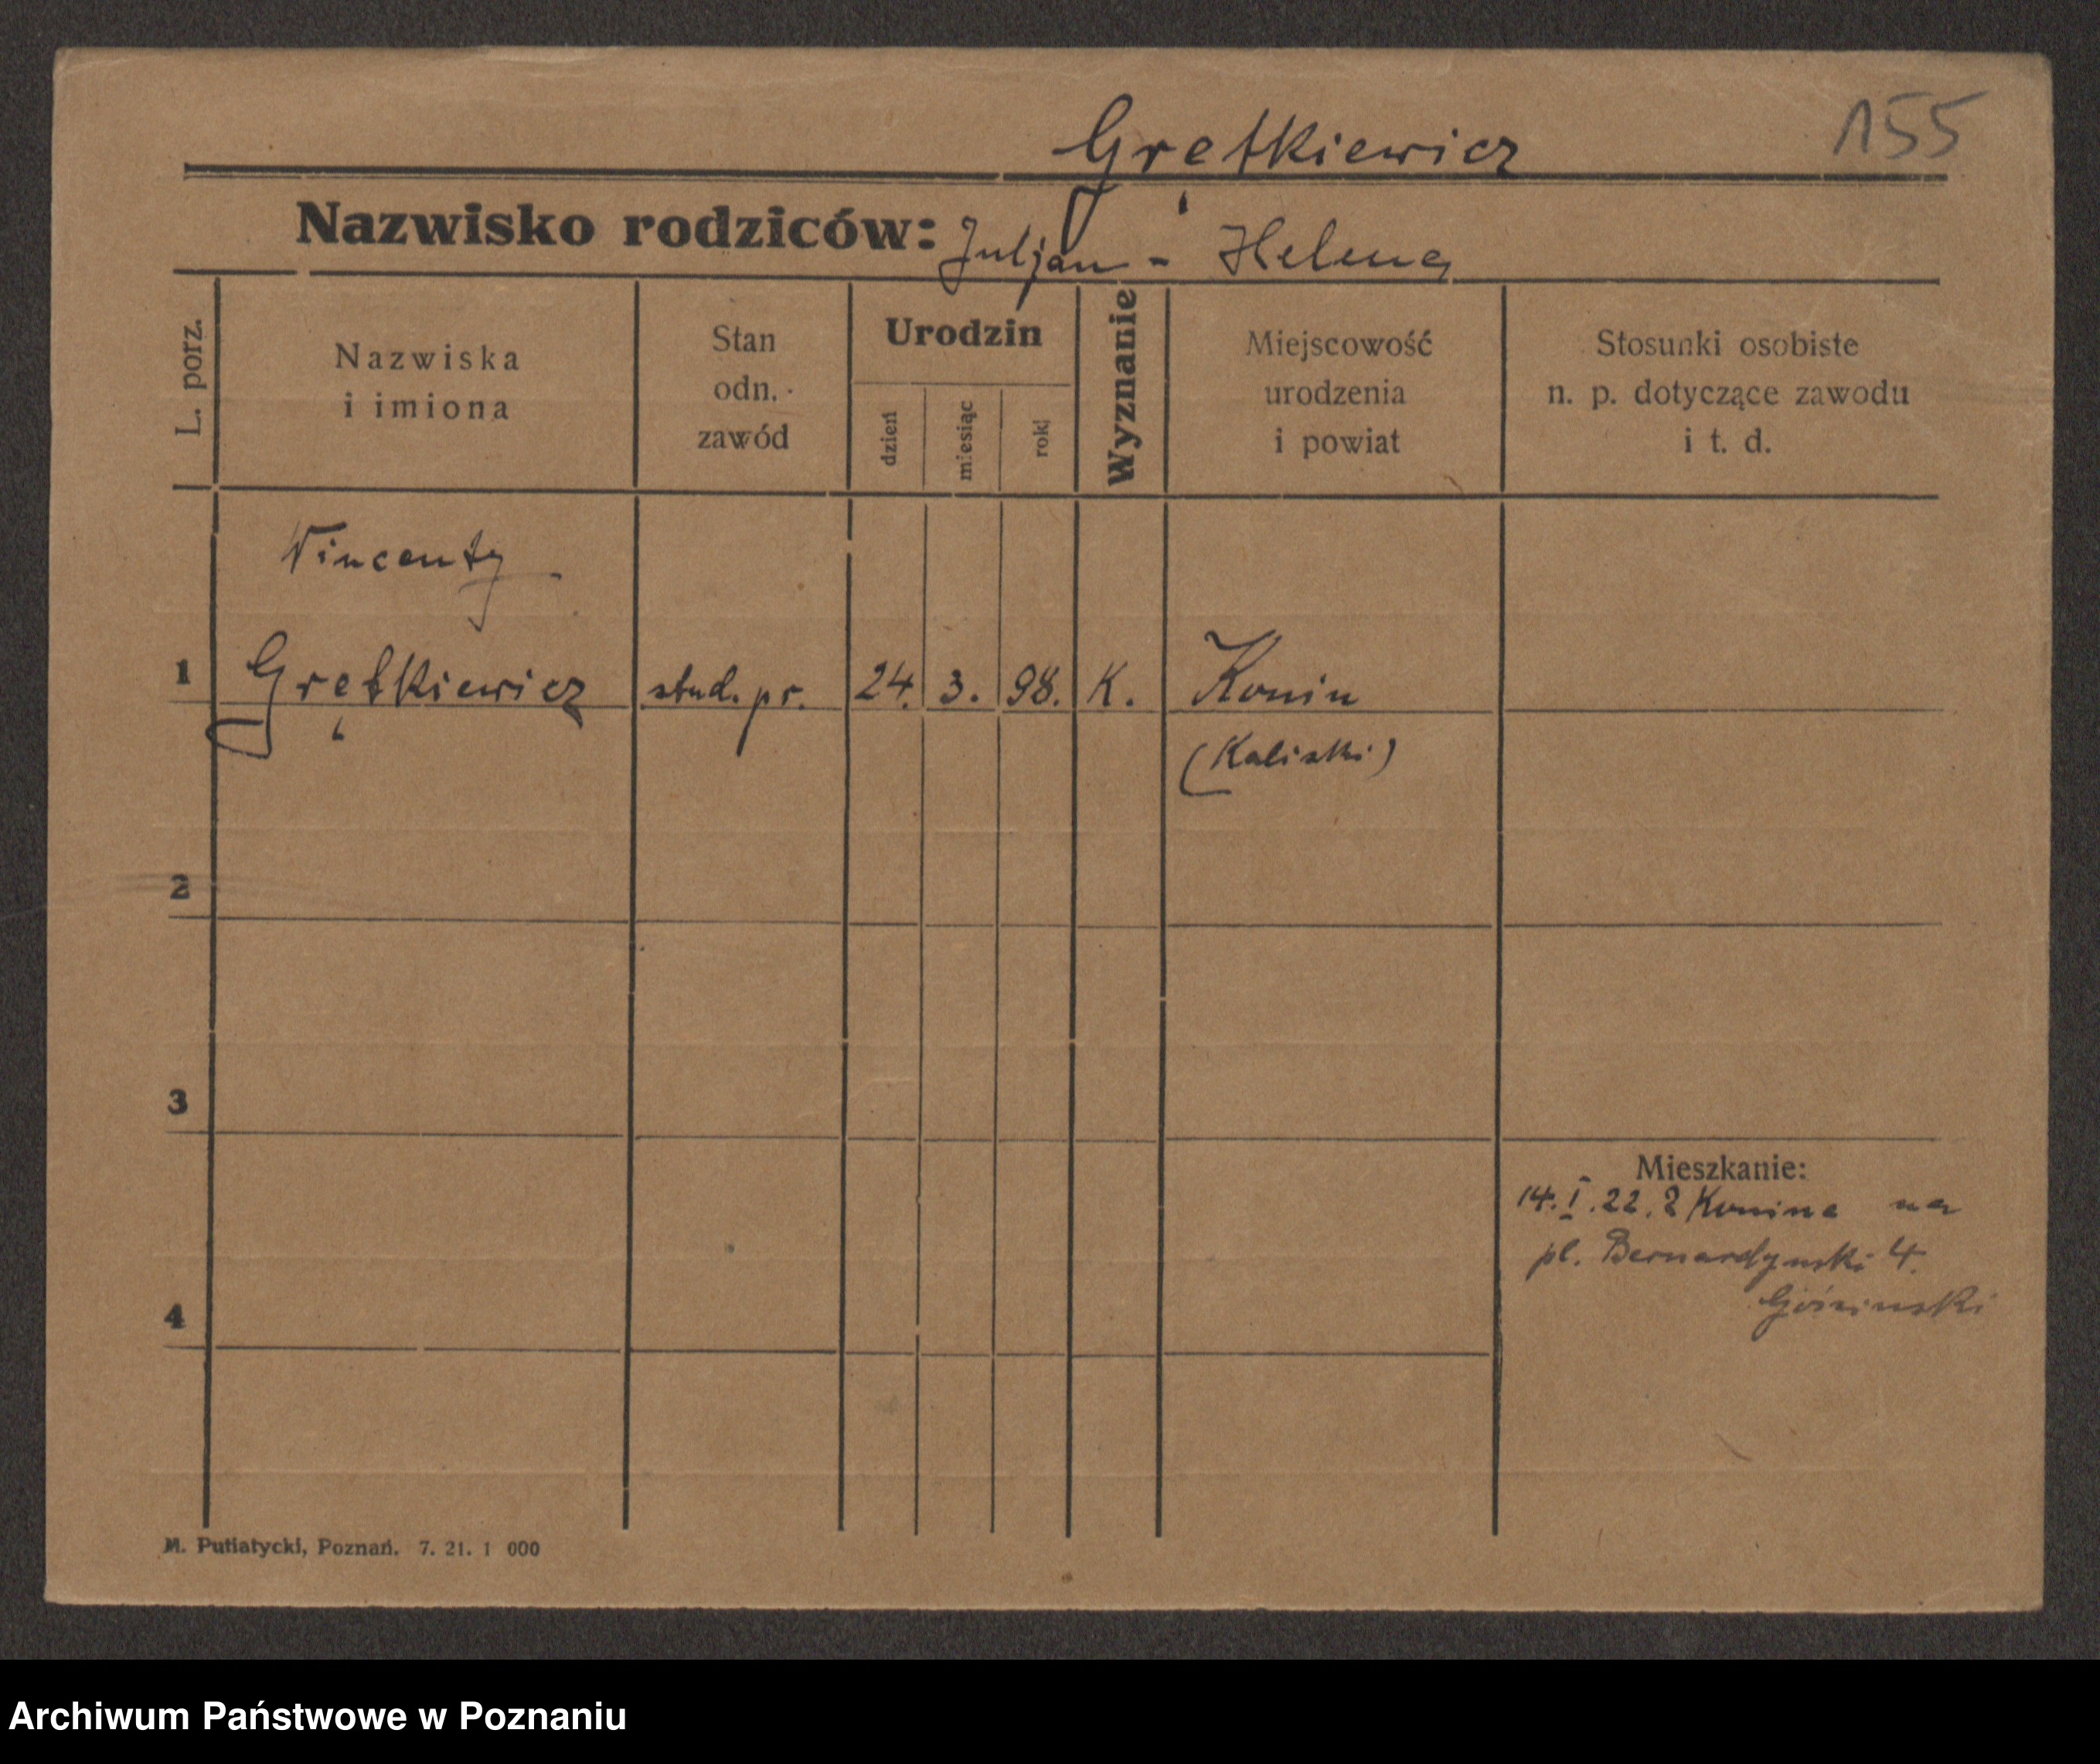 155
Grętkiewicz
Nazwisko rodziców: Juljan - Helena
L. porz.
Nazwiska
i imiona
Stan
odn.
zawód
Urodzin
dzień
miesiąc
rok
Wyznanie
Miejscowość
urodzenia
i powiat
Stosunki osobiste
n. p. dotyczące zawodu
i t. d.
Wincenty
1 Grętkiewicz stud. pr. 24. 3. 98. K. Konin
(Kaliski)
2
3
Mieszkanie:
14. I. 22. z Konina na
pl. Bernardyński 4.
4
M. Putiatycki, Poznań. 7. 21. 1 000
Archiwum Państwowe w Poznaniu